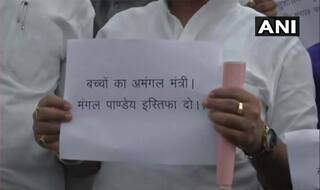 ANI
बच्चों का अमंगल मंत्री।
मंगल पाण्डेय इस्तिफा दो।